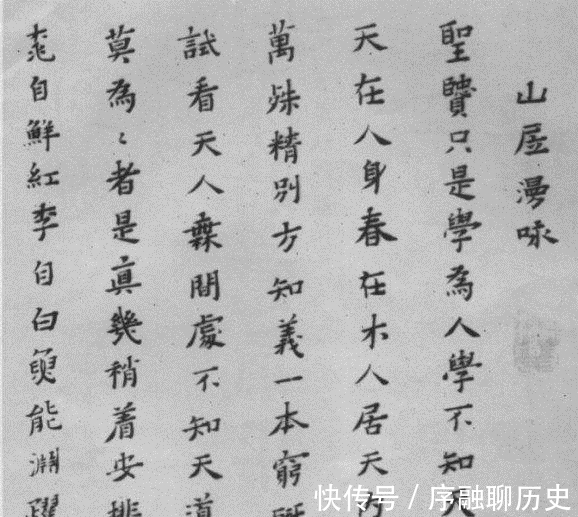 山居漫咏
聖贒只是學為人學不知天
天在人身春在木人居天
萬殊精別方知義一本窮
試看天人無間處不知天道
莫為〻者是真幾稍着安排
桃自鮮紅李自白魚能淵躍
快传号 / 序融聊历史